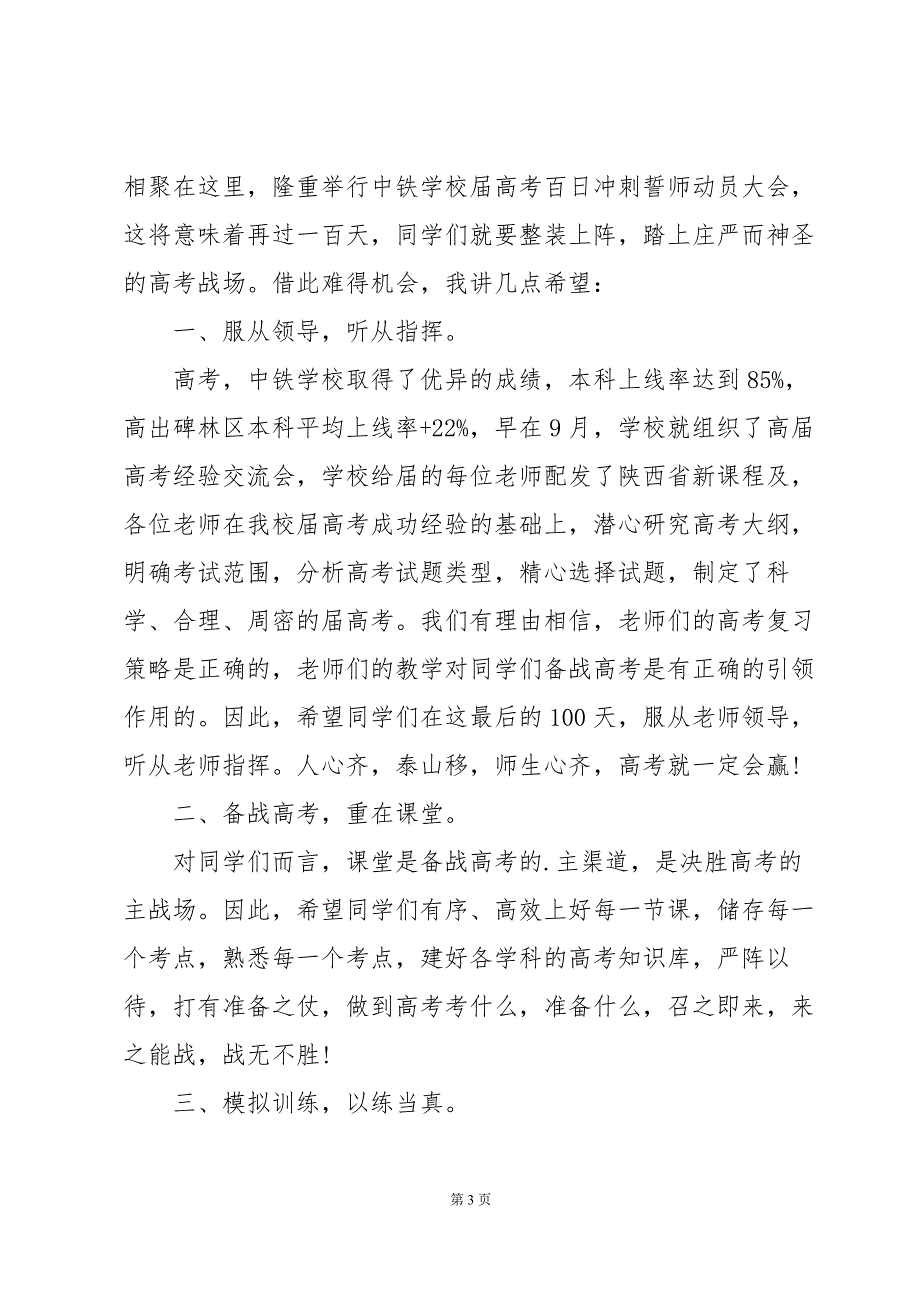 相聚在这里，隆重举行中铁学校届高考百日冲刺誓师动员大会，
这将意味着再过一百天，同学们就要整装上阵，踏上庄严而神圣
的高考战场。借此难得机会，我讲几点希望：
一、服从领导，听从指挥。
高考，中铁学校取得了优异的成绩，本科上线率达到 85%，
高出碑林区本科平均上线率+22%，早在 9 月，学校就组织了高届
高考经验交流会，学校给届的每位老师配发了陕西省新课程及，
各位老师在我校届高考成功经验的基础上，潜心研究高考大纲，
明确考试范围，分析高考试题类型，精心选择试题，制定了科
学、合理、周密的届高考。我们有理由相信，老师们的高考复习
策略是正确的，老师们的教学对同学们备战高考是有正确的引领
作用的。因此，希望同学们在这最后的 100 天，服从老师领导，
听从老师指挥。人心齐，泰山移，师生心齐，高考就一定会赢!
二、备战高考，重在课堂。
对同学们而言，课堂是备战高考的.主渠道，是决胜高考的
主战场。因此，希望同学们有序、高效上好每一节课，储存每一
个考点，熟悉每一个考点，建好各学科的高考知识库，严阵以
待，打有准备之仗，做到高考考什么，准备什么，召之即来，来
之能战，战无不胜!
三、模拟训练，以练当真。
第 3 页